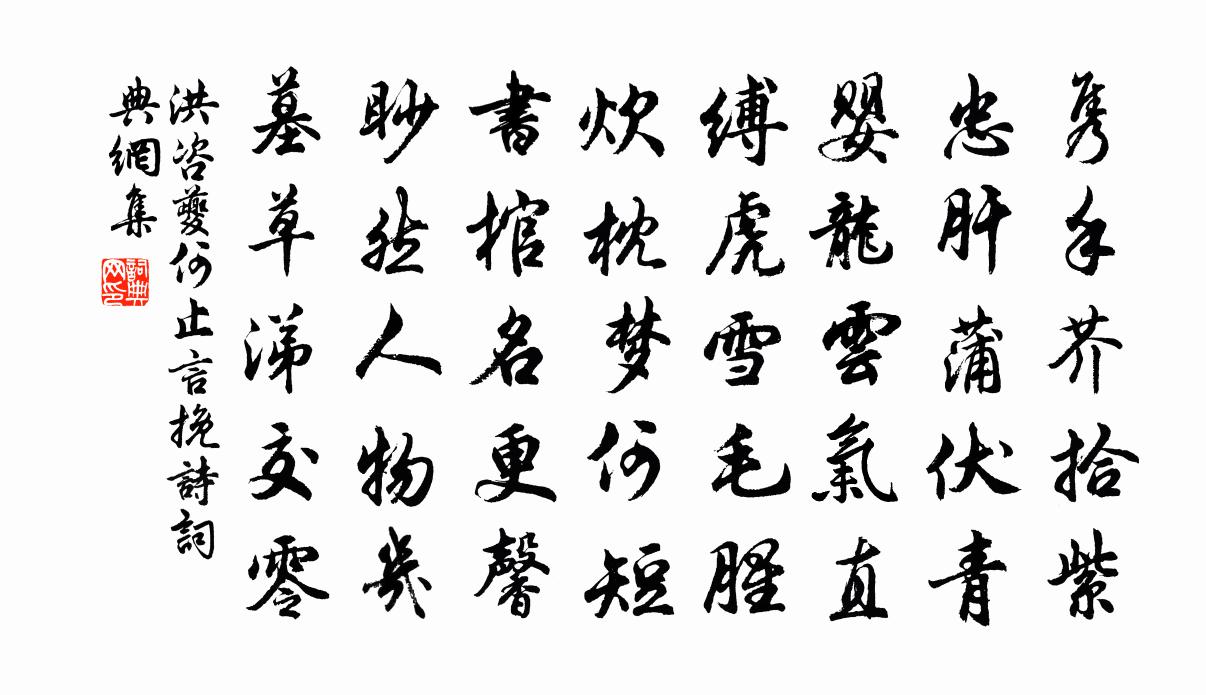 隽手芥拾紫
忠肝蒲伏青
婴龍雲氣直
縛虎雪毛腥
炊枕梦何短
書棺名更馨
眇然人物幾
墓草涕交零
洪咨夔何止言挽詩詞
典網集
詞典網印